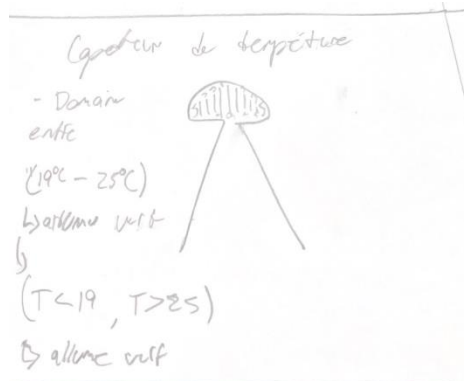 Capteur de tempéture
- Domaine
entre
(19°C - 25°C)
↳ allume vert
↳
(T<19, T>25)
↳ allume vert